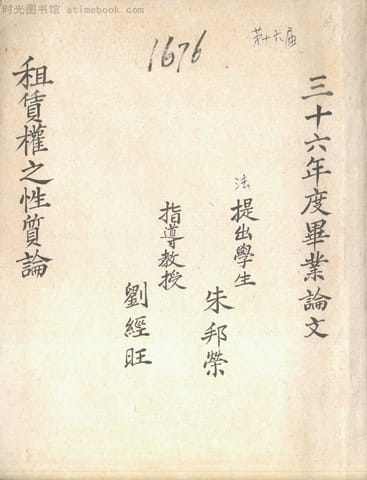 时光图书馆 atimebook.com
1676
第十六届
三十六年度畢業論文
法
提出學生
朱邦榮
指導教授
劉經旺
租賃權之性質論